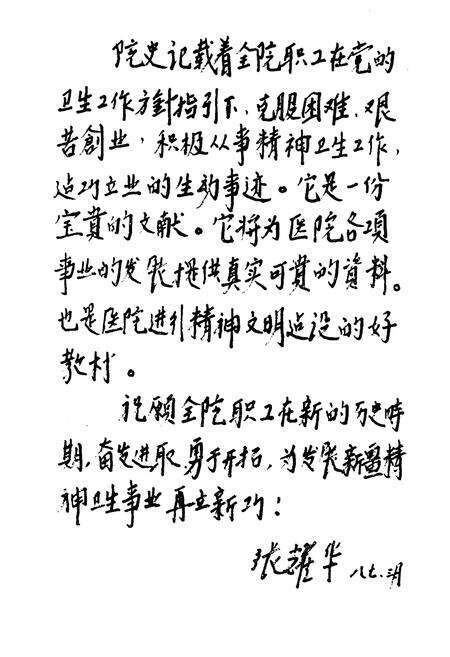 院史记载着全院职工在党的
卫生工作方針指引下、克服困难、艰
苦創业，积极从事精神卫生工作，
达功立业的生动事迹。它是一份
宝貴的文献。它将为医院各項
事业的发展提供真实可貴的資料。
也是医院进行精神文明达设的好
教材。
祝願全院职工在新的历史時
期，奋发进取，勇于开拓，为发展新畺精
神卫生事业再立新功！
张耀华 八七.三月